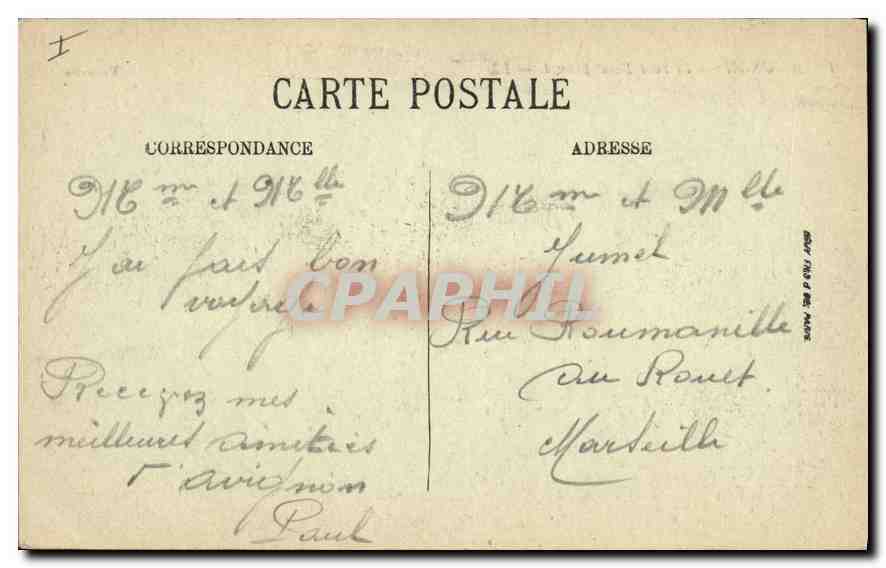 I
CARTE POSTALE
CORRESPONDANCE
Mme et Mlle
J'ai fais bon
voyage
Recevez mes
meilleures amitiés
d'avignon
Paul
ADRESSE
Mme et Mlle
Jumel
Rue Roumanille
au Rouet
Marseille
CPAPHIL